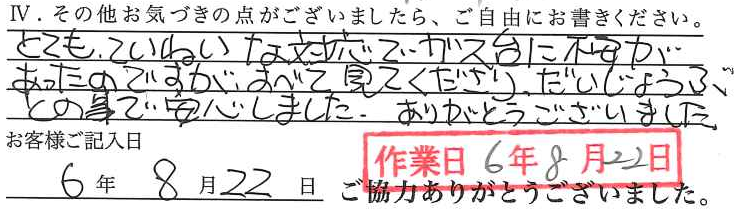 Ⅳ.その他お気づきの点がございましたら、ご自由にお書きください。
とても、ていねいな対応でガス台に不安が
あったのですが、すべて見てくださり、だいじょうぶ
との事で安心しました。ありがとうございました
お客様ご記入日
作業日 6年8月22日
6年 8月22日 ご協力ありがとうございました。